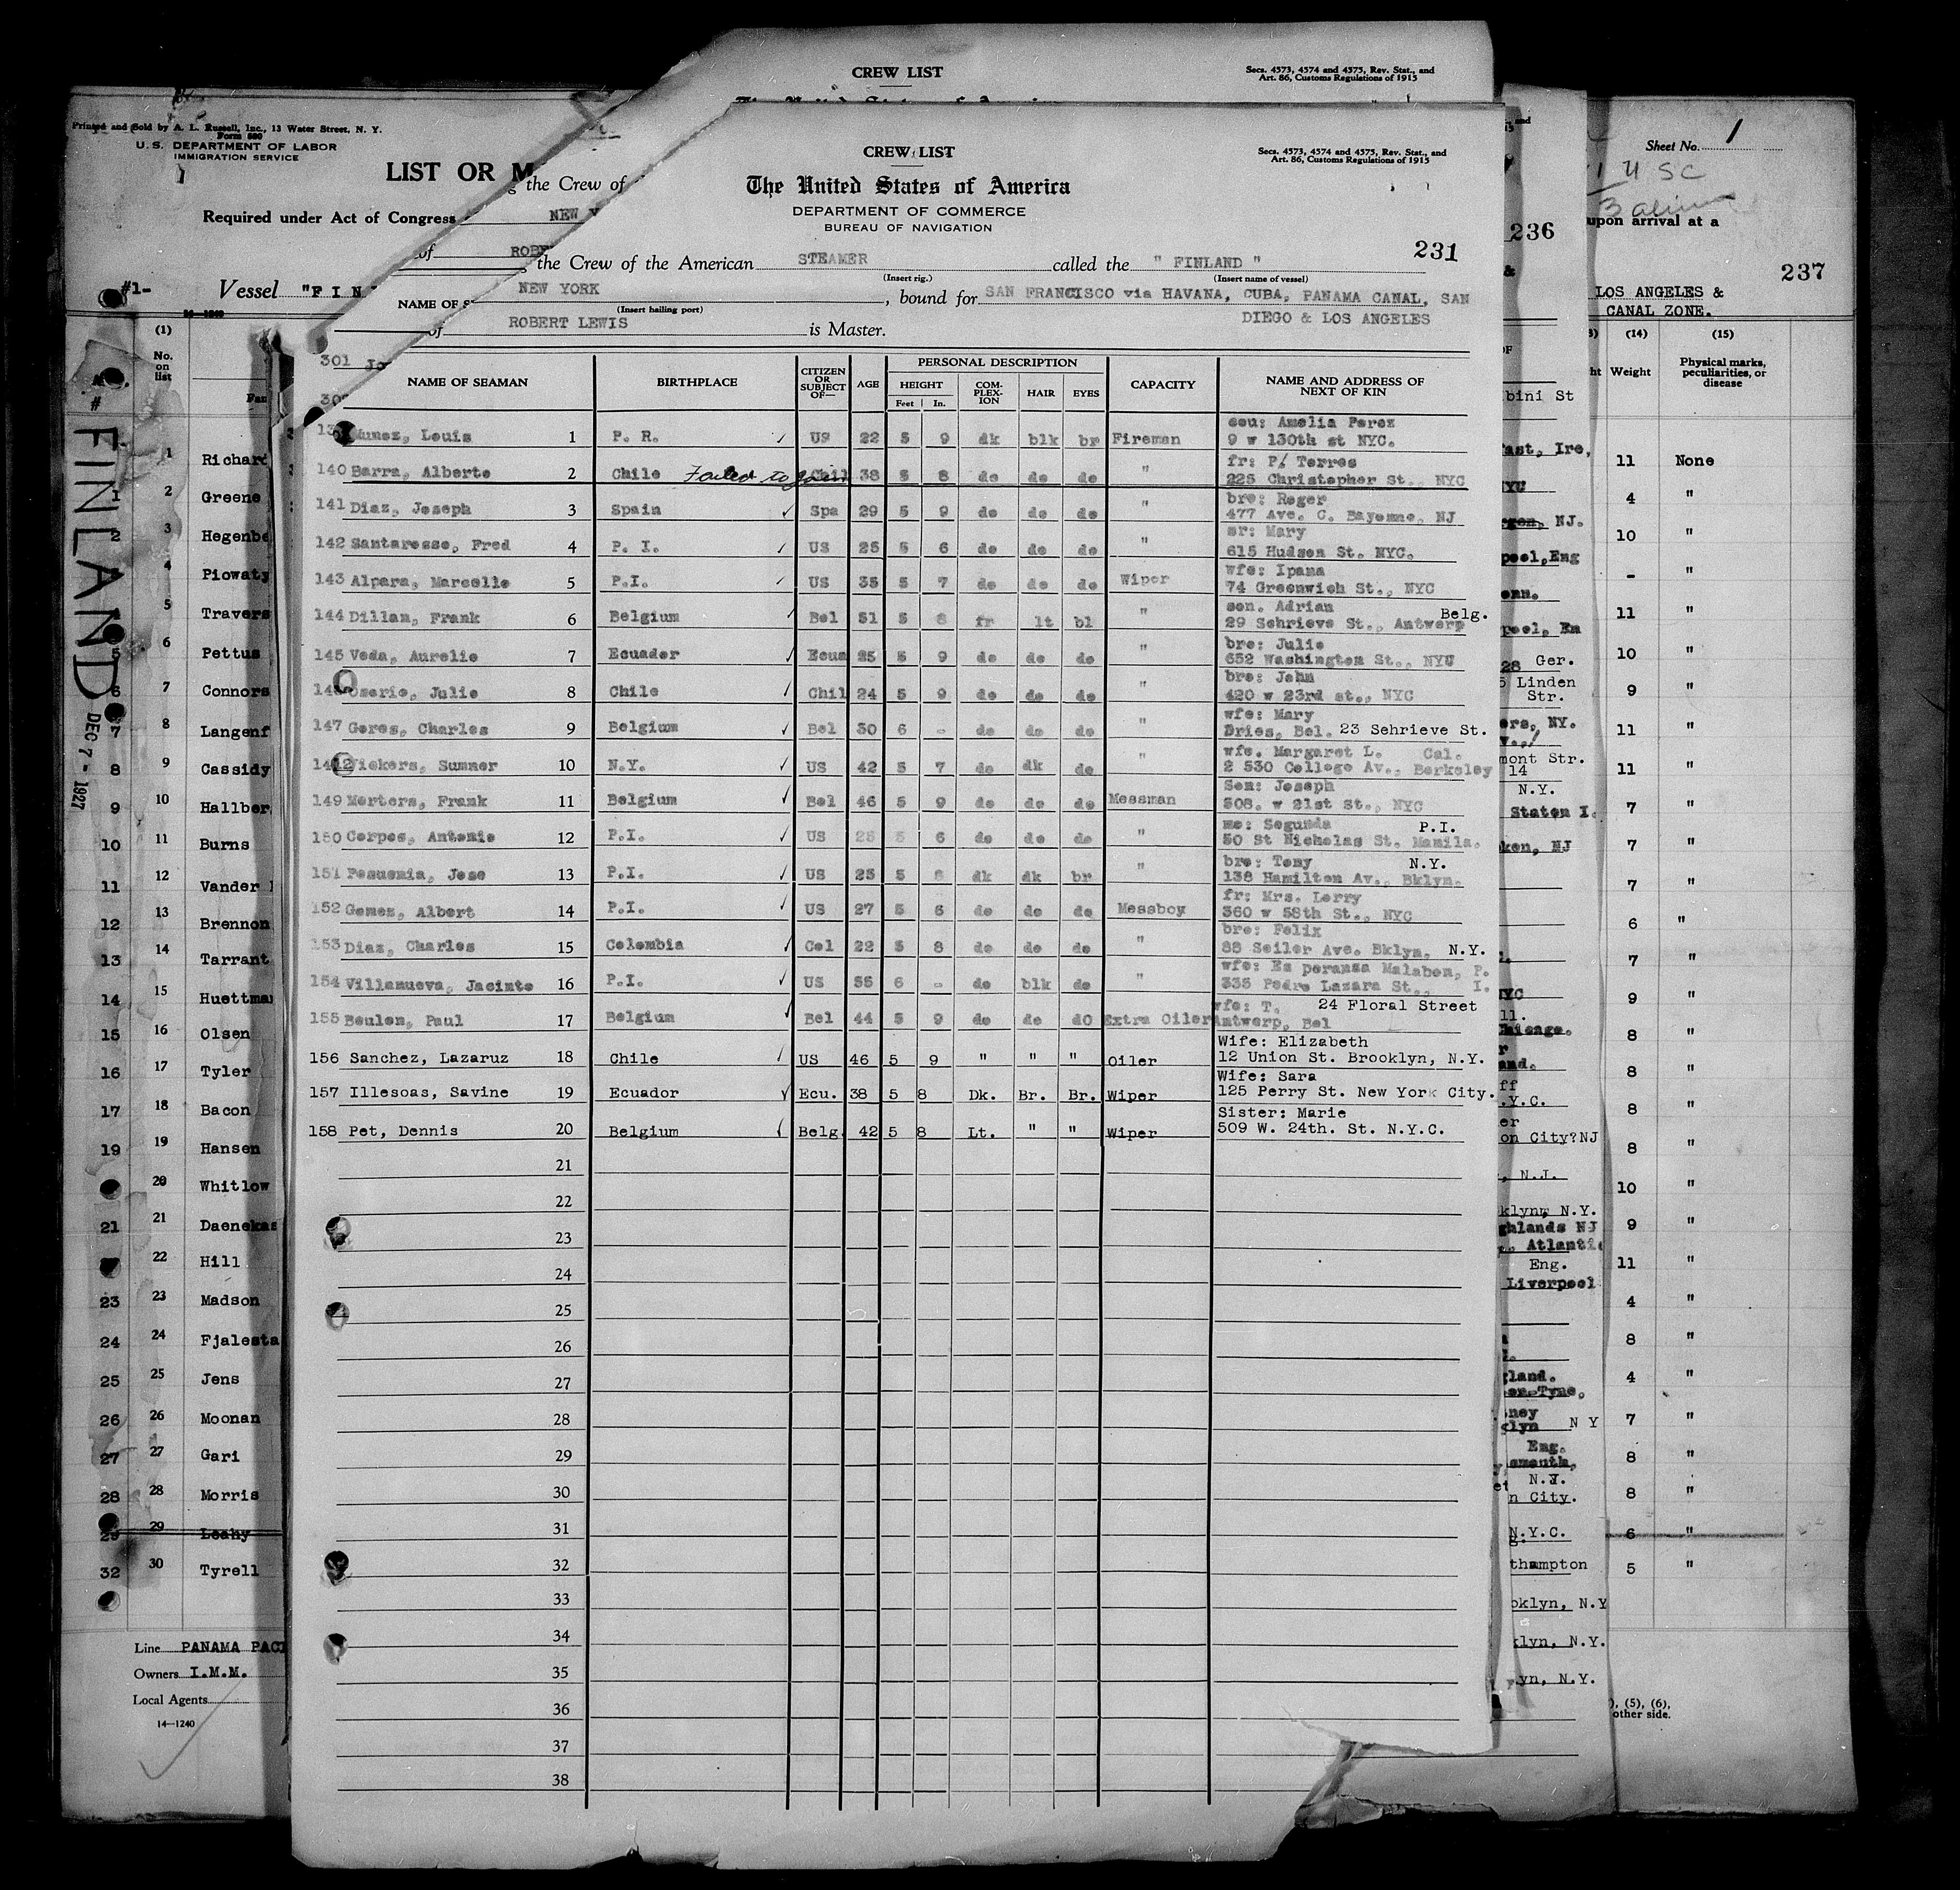 CREW LIST
Secs. 4573, 4574 and 4575, Rev. Stat., and
Art. 86, Customs Regulations of 1915
Printed and Sold by A. L. Russell, Inc., 13 Water Street, N. Y.
Form 680
U. S. DEPARTMENT OF LABOR
IMMIGRATION SERVICE
LIST OR M
Required under Act of Congress
#1- Vessel "FIN
g the Crew of
NEW Y
of ROBE
NAME OF S
301 Jo
CREW LIST
Secs. 4573, 4574 and 4575, Rev. Stat., and
Art. 86, Customs Regulations of 1915
The United States of America
DEPARTMENT OF COMMERCE
BUREAU OF NAVIGATION
231
the Crew of the American STEAMER called the " FINLAND "
(Insert rig.) (Insert name of vessel)
NEW YORK , bound for SAN FRANCISCO via HAVANA, CUBA, PANAMA CANAL, SAN
(Insert hailing port)
DIEGO & LOS ANGELES
of ROBERT LEWIS is Master.
NAME OF SEAMAN BIRTHPLACE CITIZEN OR SUBJECT OF— AGE PERSONAL DESCRIPTION CAPACITY NAME AND ADDRESS OF NEXT OF KIN
HEIGHT COM-PLEX-ION HAIR EYES
Feet In.
Munez, Louis 1 P. R. ✓ US 22 5 9 dk blk br Fireman
cou: Amelia Perez
9 w 130th st NYC.
140 Barra, Alberto 2 Chile Failed to join Chil 38 5 8 do do do "
fr: P/ Torres
225 Christopher St., NYC
141 Diaz, Joseph 3 Spain ✓ Spa 29 5 9 do do do "
bro: Roger
477 Ave. C. Bayonne, NJ
142 Santarosse, Fred 4 P. I. ✓ US 25 5 6 do do do "
sr: Mary
615 Hudson St. NYC.
143 Alpara, Marcelle 5 P.I. ✓ US 35 5 7 do do do Wiper
wfe: Ipana
74 Greenwich St., NYC
144 Dillan, Frank 6 Belgium ✓ Bel 51 5 8 fr lt bl "
son. Adrian Belg.
29 Schrieve St., Antwerp
145 Veda, Aurelio 7 Ecuador ✓ Ecua 25 5 9 do do do "
bro: Julio
652 Washington St., NYU
Oserio, Julio 8 Chile ✓ Chil 24 5 9 do do do "
bro: John
420 w 23rd st., NYC
147 Geres, Charles 9 Belgium ✓ Bel 30 6 - do do do "
wfe: Mary
Dries, Bel. 23 Sehrieve St.
Vickers, Sumner 10 N.Y. ✓ US 42 5 7 do dk do "
wfe. Margaret L. Cal.
2 530 College Av., Berkeley
149 Merters, Frank 11 Belgium ✓ Bel 46 5 9 do do do Messman
Son: Joseph
308. w 21st St., NYC
150 Corpos, Antonio 12 P.I. ✓ US 28 5 6 do do do "
mo: Segunda P.I.
50 St Nicholas St. Manila.
151 Pesuenia, Jose 13 P.I. ✓ US 25 5 8 dk dk br "
bro: Tony N.Y.
138 Hamilton Av., Bklyn.
152 Gomez, Albert 14 P.I. ✓ US 27 5 6 do do do Messboy
fr: Mrs. Lerry
360 w 58th St., NYC
153 Diaz, Charles 15 Colombia ✓ Col 22 5 8 do do do "
bro: Felix
88 Seiler Ave. Bklyn. N.Y.
154 Villanueva, Jacinto 16 P.I. ✓ US 55 6 - do blk do "
wfe: Es peranza Malabon, P.
335 Pedro Lazara St., I.
155 Beulen, Paul 17 Belgium ✓ Bel 44 5 9 do do dO Extra Oiler
wfe: T. 24 Floral Street
Antwerp, Bel
156 Sanchez, Lazaruz 18 Chile ✓ US 46 5 9 " " " Oiler
Wife: Elizabeth
12 Union St. Brooklyn, N.Y.
157 Illesoas, Savine 19 Ecuador ✓ Ecu. 38 5 8 Dk. Br. Br. Wiper
Wife: Sara
125 Perry St. New York City.
158 Pet, Dennis 20 Belgium ✓ Belg. 42 5 8 Lt. " " Wiper
Sister: Marie
509 W. 24th. St. N.Y.C.
21
22
23
24
25
26
27
28
29
30
31
32
33
34
35
36
37
38
FINLAND
DEC 7 - 1927
(1)
No. on list
Fam
1 Richard
1 2 Greene
2 3 Hegenbe
4 Piowaty
5 Travers
5 6 Pettus
6 7 Connors
7 8 Langenf
8 9 Cassidy
9 10 Hallber
10 11 Burns
11 12 Vander
12 13 Brennon
13 14 Tarrant
14 15 Huettma
15 16 Olsen
16 17 Tyler
17 18 Bacon
19 19 Hansen
20 Whitlow
21 21 Daenekas
22 Hill
23 23 Madson
24 24 Fjalesta
25 25 Jens
26 26 Moonan
27 27 Gari
28 28 Morris
29 29 Leahy
32 30 Tyrell
Line PANAMA PACI
Owners I.M.M.
Local Agents
14—1240
236
bini St
ast, Ire,
NYU
rgen, NJ.
pool,Eng
enn.
pool, En
28 Ger.
5 Linden
Str.
ers, NY.
mont Str.
14
N.Y.
Staten I.
ken, NJ
NYC
ll.
Chicago.
and.
ff
.Y.C.
er
on City?NJ
, N.J.
klyn, N.Y.
ghlands NJ
, Atlantic
Eng.
Liverpool
gland.
en-Tyne.
ney
klyn N Y
Eng.
smouth,
N.Y.
n City.
N.Y.C.
thampton
oklyn, N.Y
klyn, N.Y.
yn, N.Y.
Sheet No. 1
1 U SC
upon arrival at a
237
LOS ANGELES &
CANAL ZONE.
(14) (15)
Weight Physical marks, peculiarities, or disease
11 None
4 "
10 "
- "
11 "
10 "
9 "
11 "
11 "
7 "
7 "
7 "
6 "
7 "
9 "
8 "
8 "
8 "
8 "
10 "
9 "
11 "
4 "
8 "
4 "
7 "
8 "
8 "
6 "
5 "
), (5), (6),
other side.